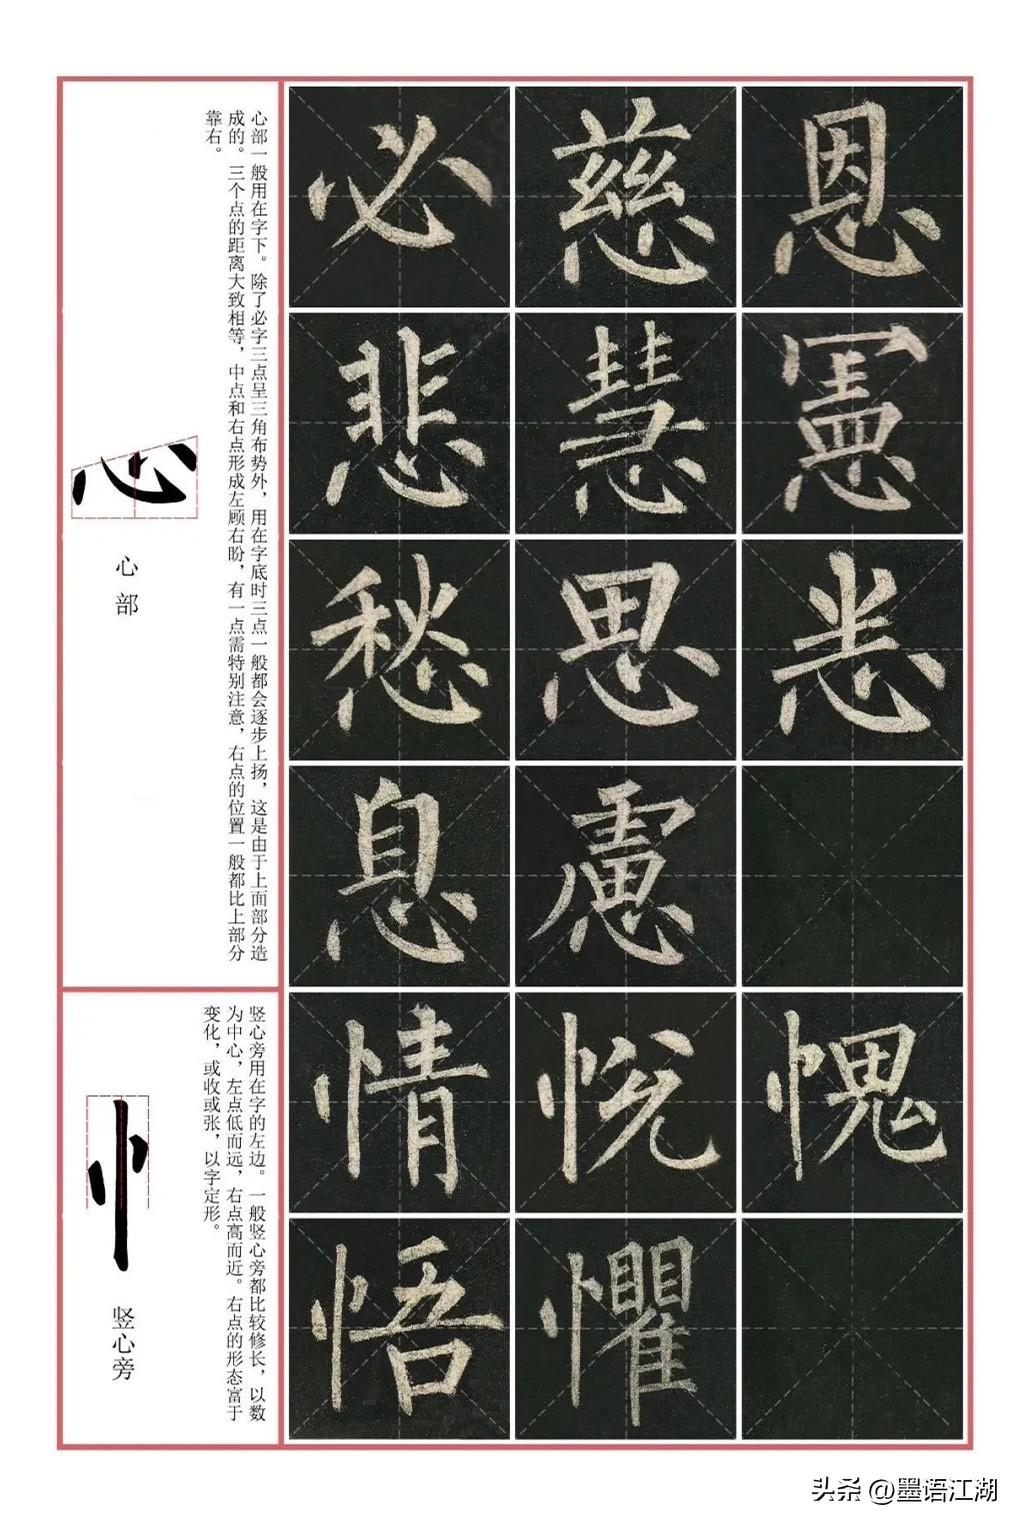 心部一般用在字下。除了必字三点呈三角布势外，用在字底时三点一般都会逐步上扬，这是由于上面部分造
成的。三个点的距离大致相等，中点和右点形成左顾右盼，有一点需特别注意，右点的位置一般都比上部分
靠右。
心
心部
必慈恩
悲慧憲
愁思悉
息慮
竖心旁用在字的左边。一般竖心旁都比较修长，以数
为中心，左点低而远，右点高而近。右点的形态富于
变化，或收或张，以字定形。
忄
竖心旁
情悦愧
悟懼
头条 @墨语江湖